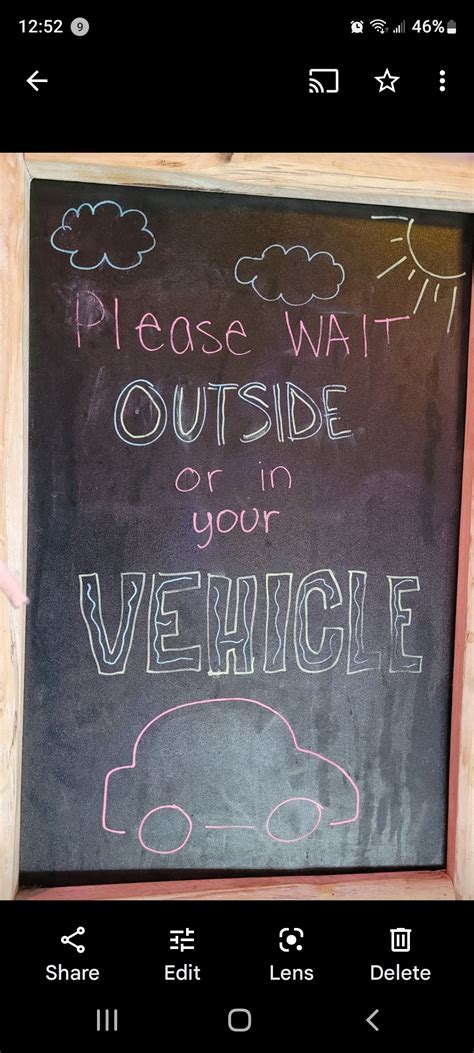 12:52 9 46%
Please WAIT
OUTSIDE
or in
your
VEHICLE
Share Edit Lens Delete